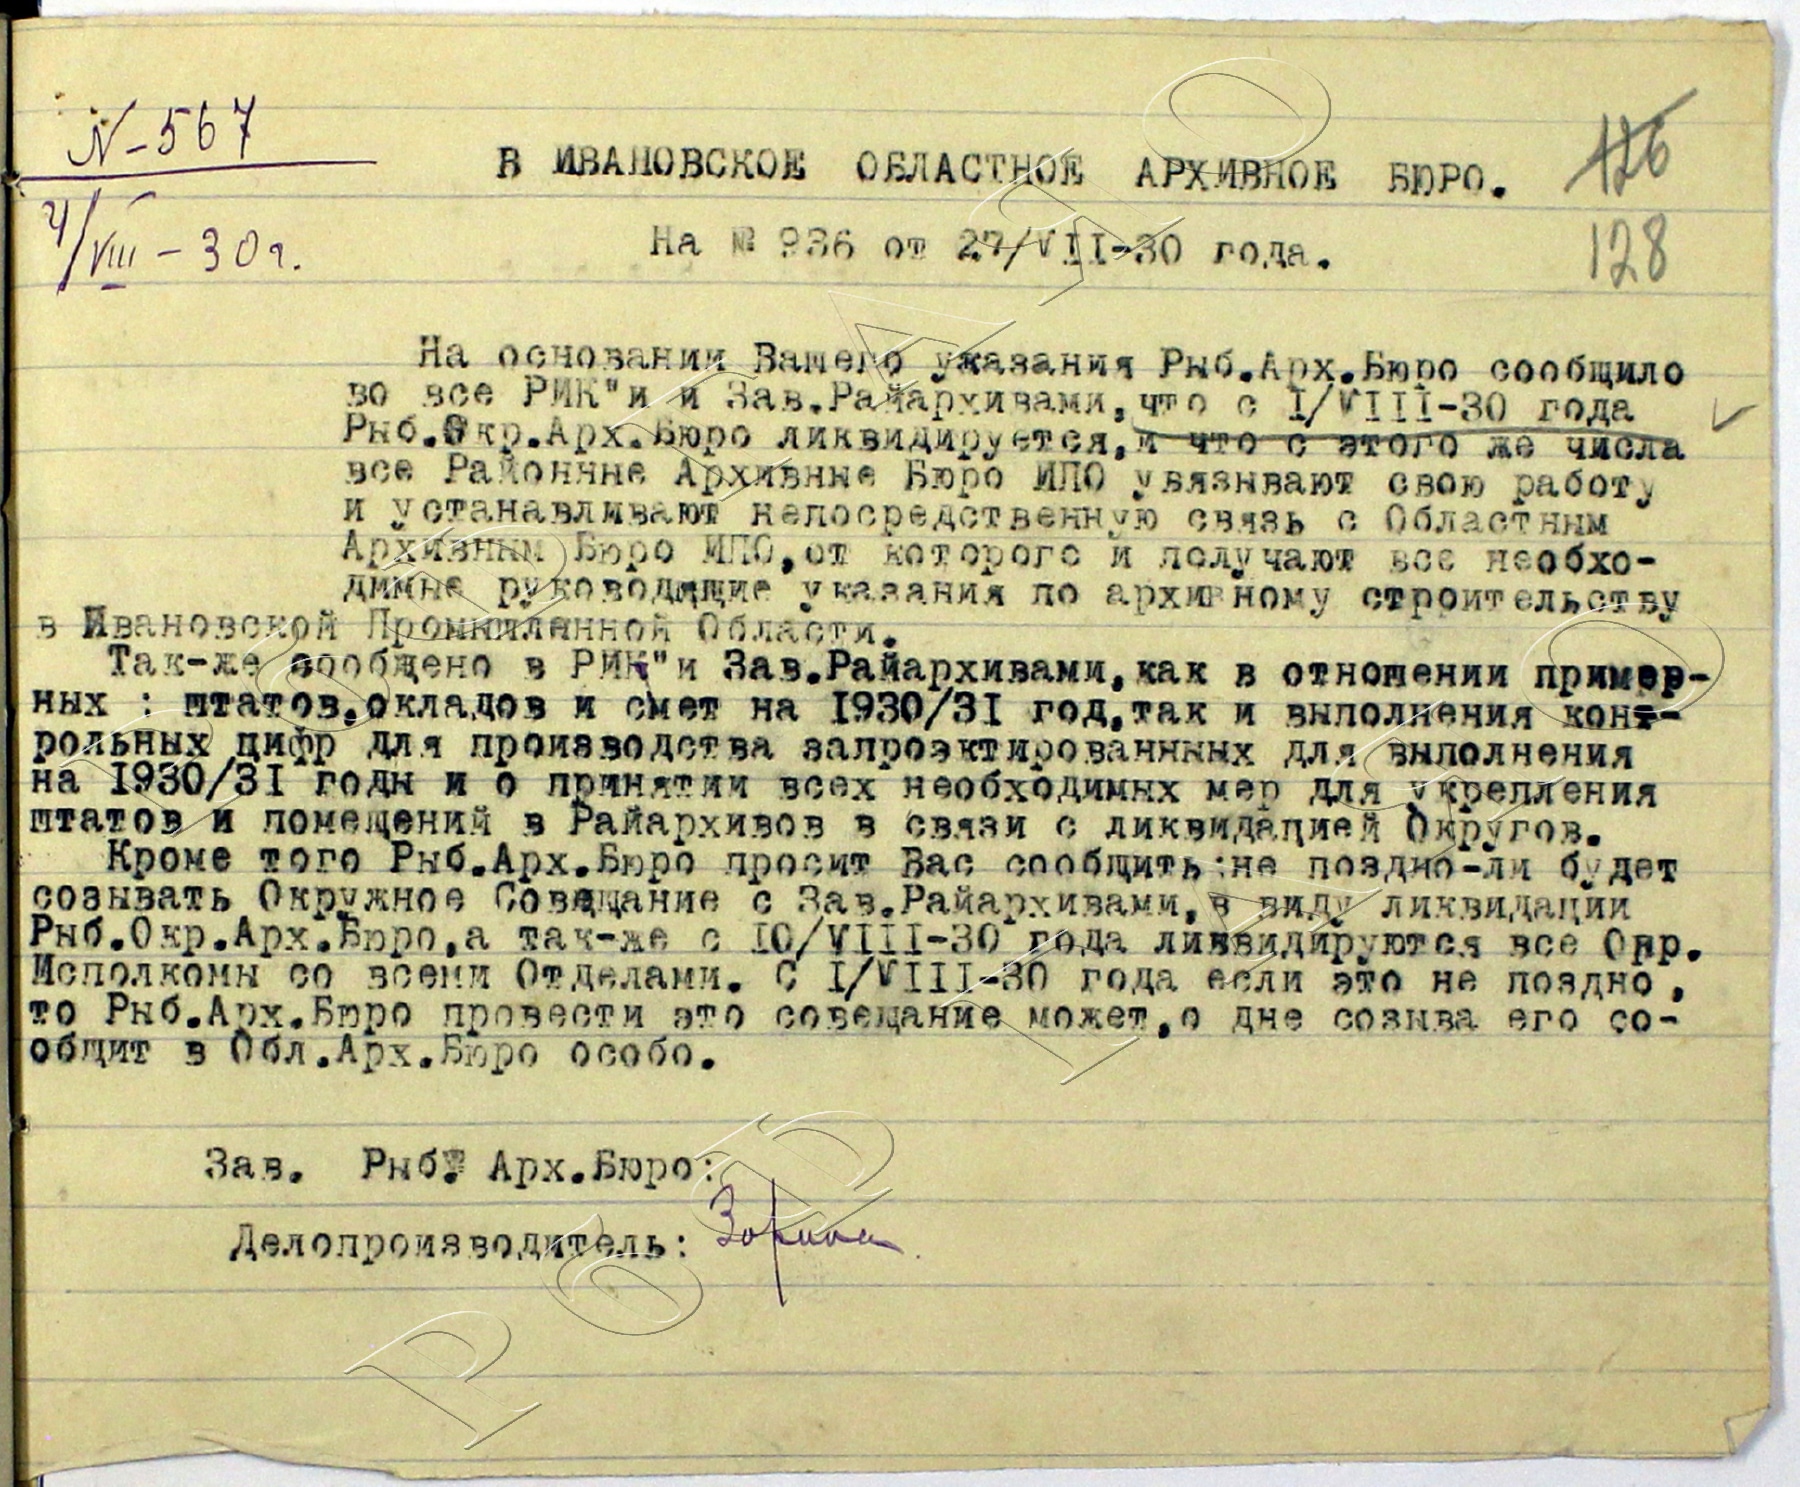 N-567
4/VIII-30г.
126
128
В ИВАНОВСКОЕ ОБЛАСТНОЕ АРХИВНОЕ БЮРО.
На № 936 от 27/VII-30 года.
На основании Вашего указания Рыб.Арх.Бюро сообщило
во все РИК"и и Зав.Райархивами,что с I/VIII-30 года
Рыб.Окр.Арх.Бюро ликвидируется,и что с этого же числа
все Районные Архивные Бюро ИПО увязывают свою работу
и устанавливают непосредственную связь с Областным
Архивным Бюро ИПО,от которого и получают все необхо-
димые руководящие указания по архивному строительству
в Ивановской Промышленной Области.
Так-же сообщено в РИК"и Зав.Райархивами,как в отношении пример-
ных : штатов,окладов и смет на 1930/31 год,так и выполнения конт-
рольных цифр для производства запроэктированнных для выполнения
на 1930/31 годы и о принятии всех необходимых мер для укрепления
штатов и помещений в Райархивов в связи с ликвидацией Округов.
Кроме того Рыб.Арх.Бюро просит Вас сообщить:не поздно-ли будет
созывать Окружное Совещание с Зав.Райархивами,в виду ликвидации
Рыб.Окр.Арх.Бюро,а так-же с IO/VIII-30 года ликвидируются все Окр.
Исполкомы со всеми Отделами. С I/VIII-30 года если это не поздно,
то Рыб.Арх.Бюро провести это совещание может,о дне созыва его со-
общит в Обл.Арх.Бюро особо.
Зав. Рыб. Арх.Бюро:
Делопроизводитель: Зорина